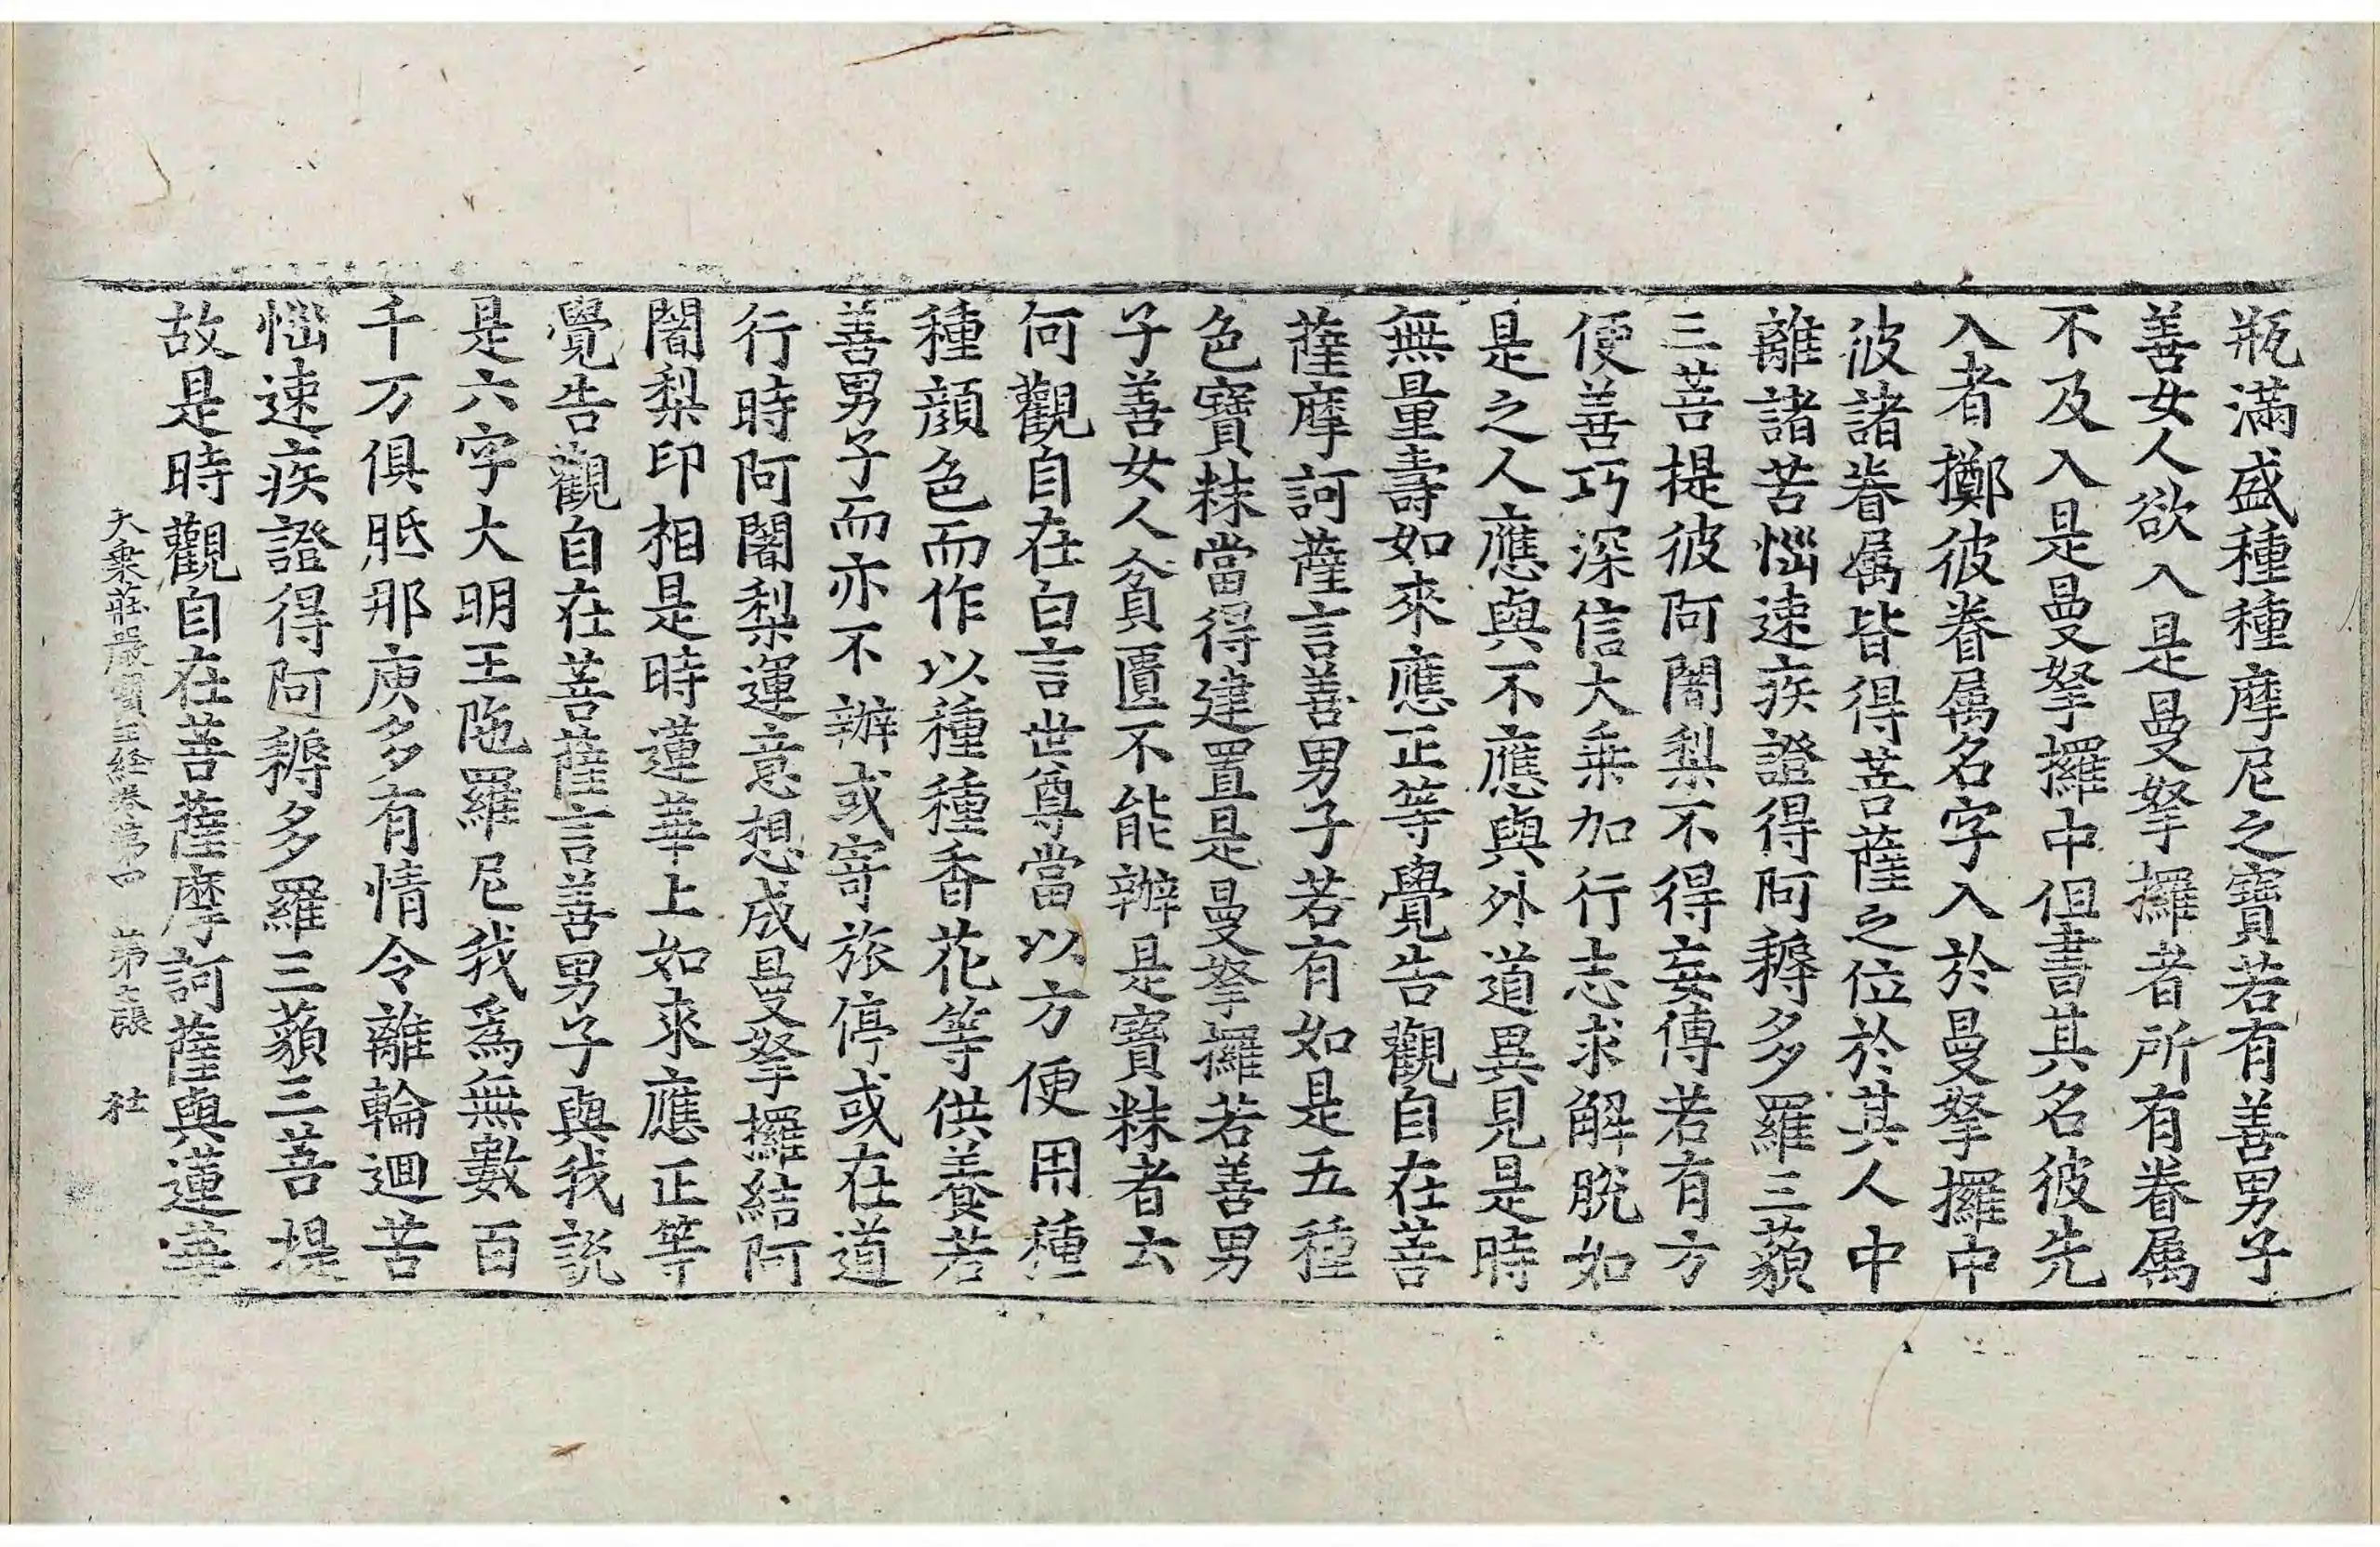 瓶滿盛種種摩尼之寶若有善男子
善女人欲入是曼拏攞者所有眷属
不及入是曼拏攞中但書其名彼先
入者擲彼眷属名字入於曼拏攞中
彼諸眷属皆得菩薩之位於其人中
離諸苦惱速疾證得阿耨多羅三藐
三菩提彼阿闍梨不得妄傳若有方
便善巧深信大乗加行志求解脫如
是之人應與不應與外道異見是時
無量壽如來應正等覺告觀自在菩
薩摩訶薩言善男子若有如是五種
色寶粖當得建置是曼拏攞若善男
子善女人貧匱不能辦是寶粖者云
何觀自在白言世尊當以方便用種
種顔色而作以種種香花等供養若
善男子而亦不辦或寄旅停或在道
行時阿闍梨運意想成曼拏攞結阿
闍梨印相是時蓮華上如來應正等
覺告觀自在菩薩言善男子與我說
是六字大明王陁羅尼我為無數百
千万俱胝那庾多有情令離輪迴苦
惱速疾證得阿耨多羅三藐三菩提
故是時觀自在菩薩摩訶薩與蓮華
大乗莊嚴寶王經卷第四 第七張 社